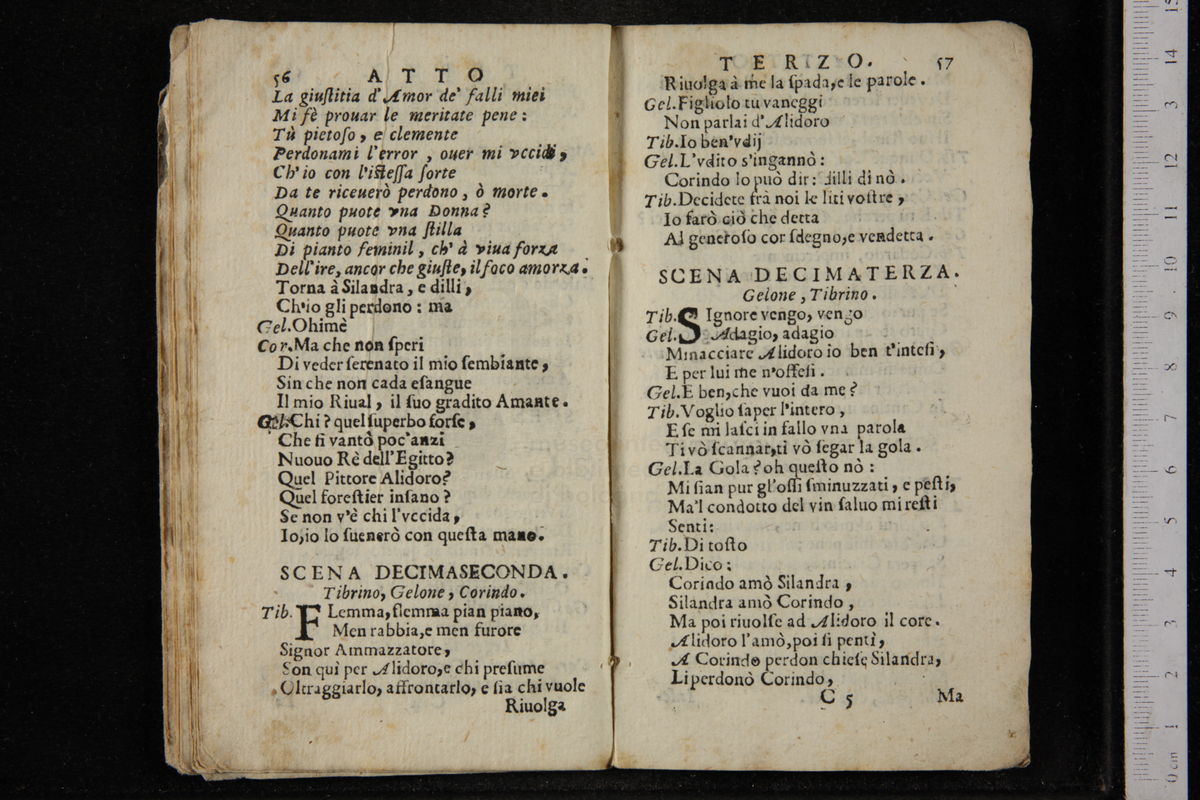 56 ATTO
La giuſtitia d'Amor de' falli miei
Mi fè prouar le meritate pene:
Tù pietoſo, e clemente
Perdonami l'error, ouer mi vccidi,
Ch'io con l'iſteſſa ſorte
Da te riceuerò perdono, ò morte.
Quanto puote vna Donna?
Quanto puote vna ſtilla
Di pianto feminil, ch' à viua forza
Dell'ire, ancor che giuſte, il foco amorza.
Torna à Silandra, e dilli,
Ch'io gli perdono: ma
Gel. Ohimè
Cor. Ma che non ſperi
Di veder ſerenato il mio ſembiante,
Sin che non cada eſangue
Il mio Riual, il ſuo gradito Amante.
Gel. Chi? quel ſuperbo forſe,
Che ſi vantò poc'anzi
Nuouo Rè dell'Egitto?
Quel Pittore Alidoro?
Quel foreſtier inſano?
Se non v'è chi l'vccida,
Io, io lo ſuenerò con queſta mano.
SCENA DECIMASECONDA.
Tibrino, Gelone, Corindo.
Tib. FLemma, flemma pian piano,
Men rabbia, e men furore
Signor Ammazzatore,
Son quì per Alidoro, e chi preſume
Oltraggiarlo, affrontarlo, e ſia chi vuole
Riuolga
TERZO. 57
Riuolga à me la ſpada, e le parole.
Gel. Figliolo tu vaneggi
Non parlai d'Alidoro
Tib. Io ben'vdij
Gel. L'vdito s'ingannò:
Corindo lo può dir: dilli di nò.
Tib. Decidete frà noi le liti voſtre,
Io farò ciò che detta
Al generoſo cor ſdegno, e vendetta.
SCENA DECIMATERZA.
Gelone, Tibrino.
Tib. SIgnore vengo, vengo
Gel. Adagio, adagio
Minacciare Alidoro io ben t'inteſi,
E per lui me n'offeſi.
Gel. E ben, che vuoi da me?
Tib. Voglio ſaper l'intero,
E ſe mi laſci in fallo vna parola
Ti vò ſcannar, ti vò ſegar la gola.
Gel. La Gola? oh queſto nò:
Mi ſian pur gl'oſſi ſminuzzati, e peſti,
Ma'l condotto del vin ſaluo mi reſti
Senti:
Tib. Di toſto
Gel. Dico:
Corindo amò Silandra,
Silandra amò Corindo,
Ma poi riuolſe ad Alidoro il core.
Alidoro l'amò, poi ſi pentì,
A Corindo perdon chieſe Silandra,
Li perdonò Corindo,
C 5 Ma